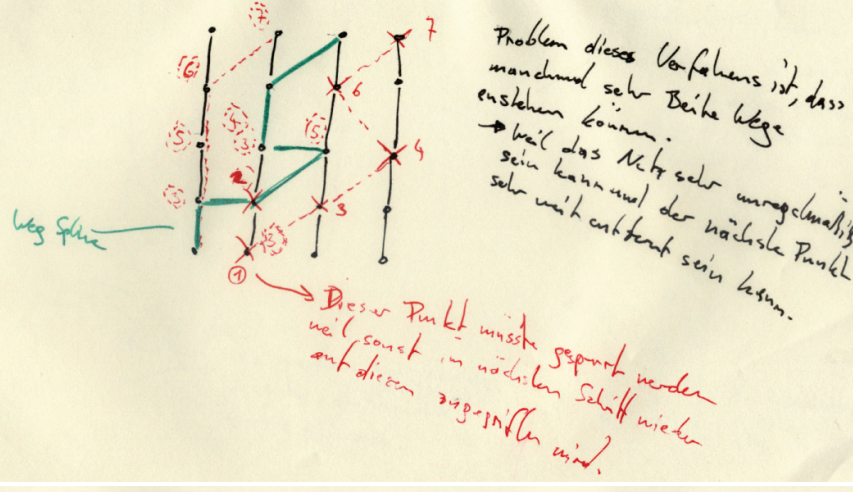 7
6
5
5
4
3
5
2
3
1
6
7
4
3
Weg Spline
Problem dieses Verfahrens ist, dass
manchmal sehr Beite Wege
enstehen können.
→ weil das Netz sehr unregelmäßig
sein kann und der nächste Punkt
sehr weit entfernt sein kann.
Dieser Punkt müsste gesperrt werden
weil sonst im nächsten Schritt wieder
auf diesen zugegriffen wird.